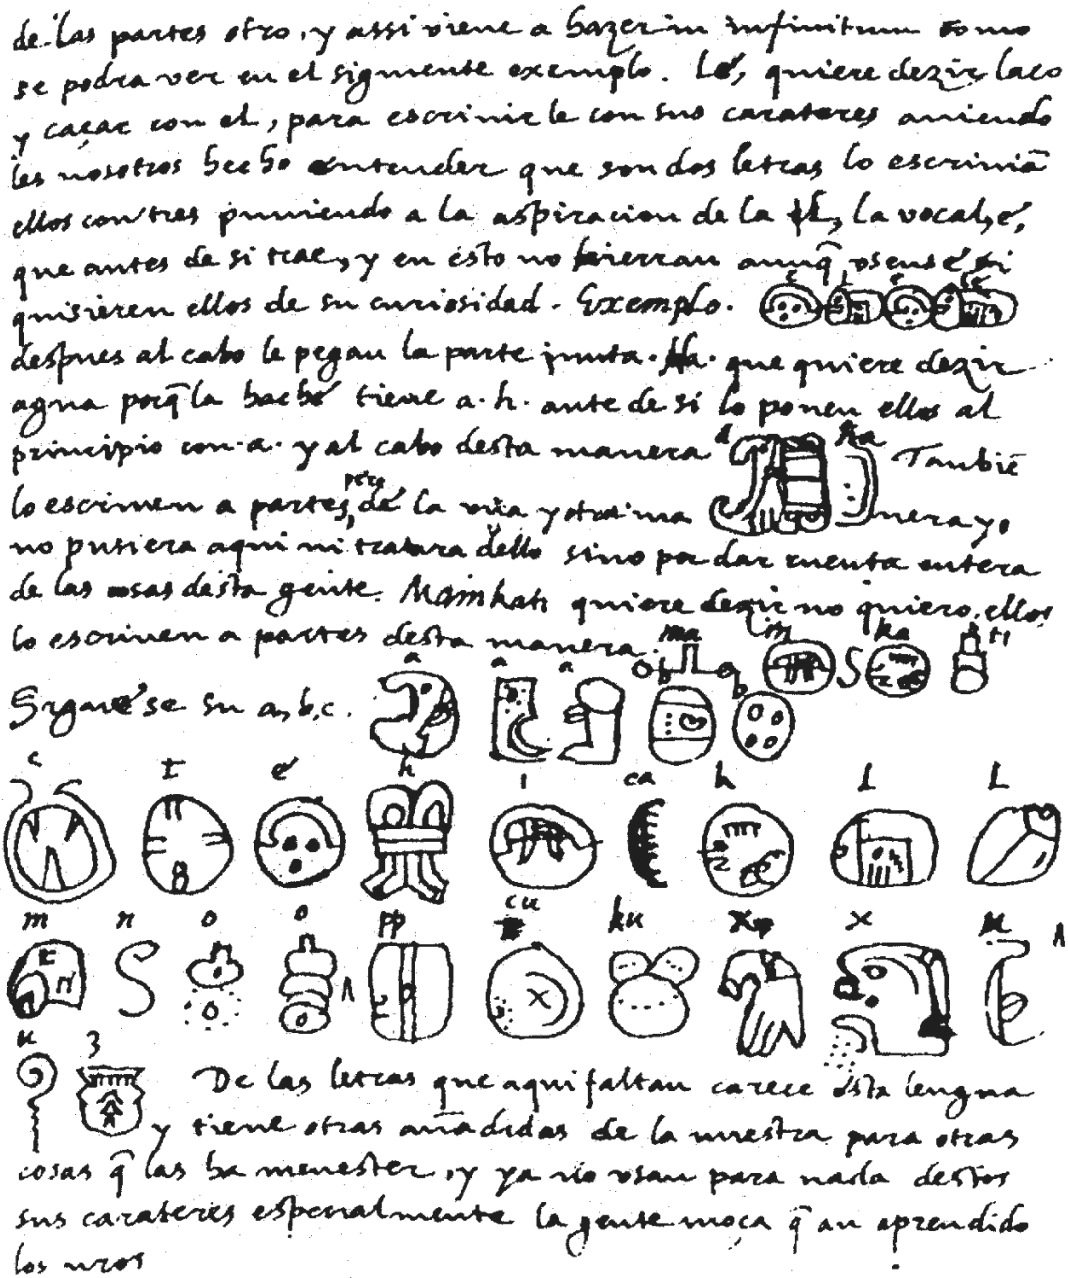 de las partes otro, y assi viene a hazer in infinitum como
se podra ver en el siguiente exemplo. Lé, quiere dezir laço
y caçar con el, para escrivir le con sus carateres aviendo
les nosotros hecho entender que son dos letras lo escriviã
ellos con tres puniendo a la aspiracion de la l, la vocal, é,
que antes de si trae, y en esto no hierran aunq̃ usense si
quisieren ellos de su curiosidad. Exemplo. e L e Lé
despues al cabo le pegan la parte junta. Ha. que quiere dezir
agua porq̃ la hache tiene a. h. ante de si lo ponen ellos al
principio con. a. y al cabo desta manera a ha Tambiẽ
lo escriven a partes, pero de la una y otra ma nera yo
no pusiera aqui ni tratara dello sino por dar cuenta entera
de las cosas desta gente. Mainkati quiere dezir no quiero, ellos
lo escriven a partes desta manera. ma in ka ti
Siguese su a, b, c. a a a b b
c t é h i ca k l L
m n o o pp cu ku x x u
u z De las letras que aqui faltan carece esta lengua
y tiene otras añadidas de la nuestra para otras
cosas q̃ las ha menester, y ya no usan para nada destos
sus carateres especialmente la gente moça q̃ an aprendido
los nros